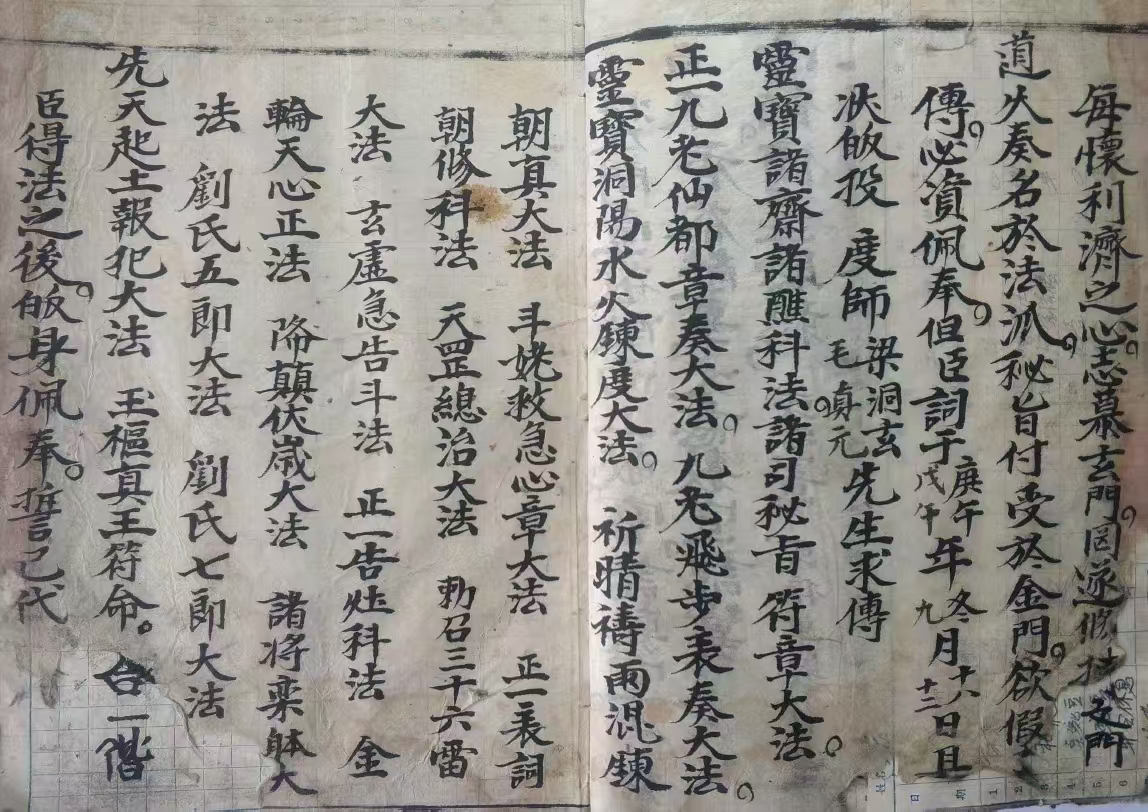 每懷利濟之心。志慕玄門。因遂修持之門
道。火奏名於法派。秘旨付受於金門。欲假
傳。必資佩奉。但臣詞于庚午戊午年冬九月十八十二日且
狀皈投 度師梁洞玄毛真元先生求傳
靈寶諸齋諸醮科法。諸司秘旨 符章大法。
正一九老仙都章奏大法。九老飛步表奏大法。
靈寶洞陽水火鍊度大法。 祈晴禱雨混鍊
朝真大法 斗姥救急心章大法 正一表詞
朝修科法 天罡總治大法 勅召三十六雷
大法 玄虛急告斗法 正一告灶科法 金
輪天心正法 降顛伏歲大法 諸將栾躰大
法 劉氏五郎大法 劉氏七郎大法
先天起土報犯大法 玉樞真王符命。合一偕
臣得法之後。皈身佩奉。誓己代